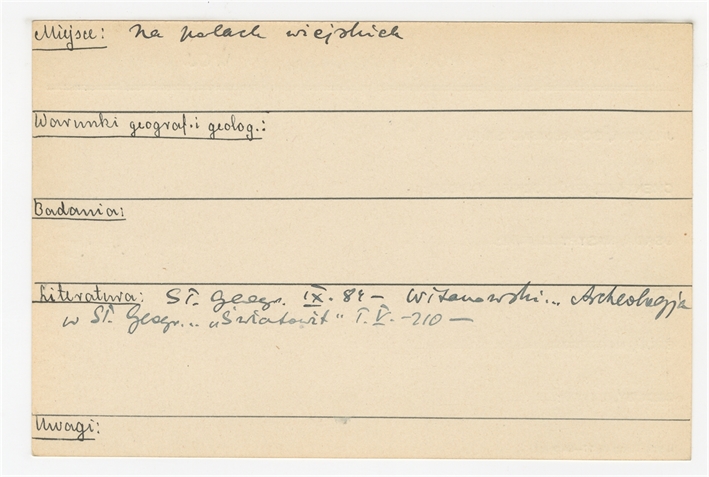 Miejsce: na polach wiejskich
Warunki geograf. i geolog.:
Badania:
Literatura: Sł. Geogr. IX. 84 – Witanowski... Archeologja
w Sł. Geogr... „Światowit" T. V. – 210 —
Uwagi: